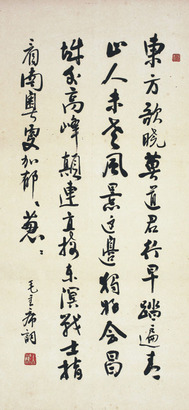 東方欲晓莫道君行早踏遍青
山人未老風景这邊獨好会昌
城外高峰顛連直接东溟戰士指
看南粤更加郁〻葱〻
毛主席詞